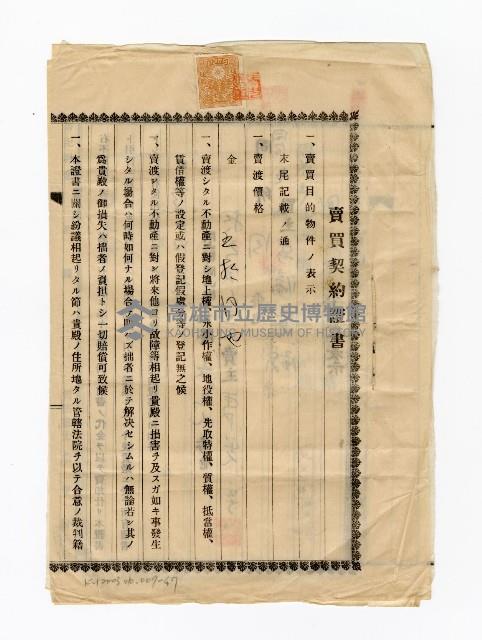 賣買契約證書
一、賣買目的物件ノ表示
末尾記載ノ通
一、賣渡價格
金
一、賣渡シタル不動產ニ對シ地上權、永小作權、地役權、先取特權、質權、抵當權、
賃借權等ノ設定或ハ假登記假處分等ノ登記無之候
一、賣渡シタル不動產ニ對シ將來他ヨリ故障等相起リ貴殿ニ損害ヲ及スガ如キ事發生
シタル場合ハ何時如何ナル場合ヲ問ハズ拙者ニ於テ解決セシムルハ無論若シ其ノ
爲貴殿ノ御損失ハ拙者ノ負担トシ一切賠償可致候
一、本證書ニ關シ紛議相起リタル節ハ貴殿ノ住所地タル管轄法院ヲ以テ合意ノ裁判籍
高雄市立歷史博物館
KAOHSIUNG MUSEUM OF HISTORY